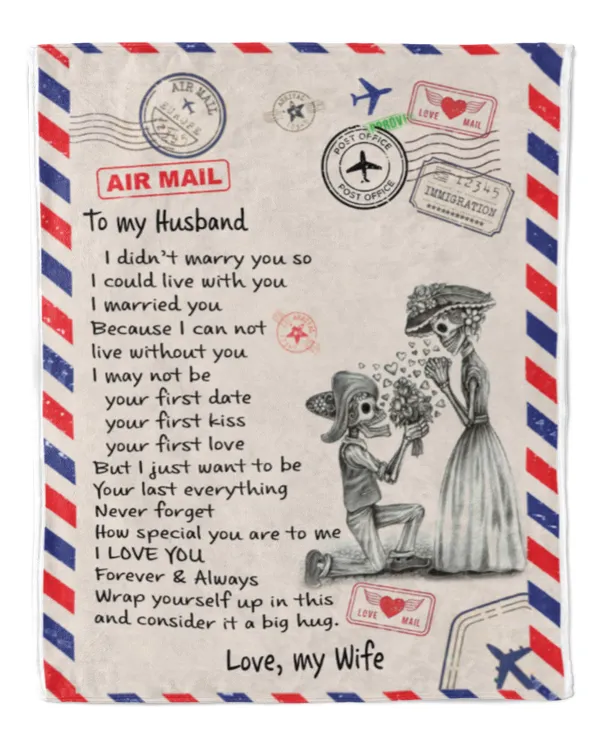 AIR MAIL
EUROPE
12345
LOVE MAIL
POST OFFICE
POST OFFICE
12345
IMMIGRATION
AIR MAIL
To my Husband
I didn't marry you so
I could live with you
I married you
Because I can not
live without you
I may not be
your first date
your first kiss
your first love
But I just want to be
Your last everything
Never forget
How special you are to me
I LOVE YOU
Forever & Always
Wrap yourself up in this
and consider it a big hug.
LOVE MAIL
Love, my Wife